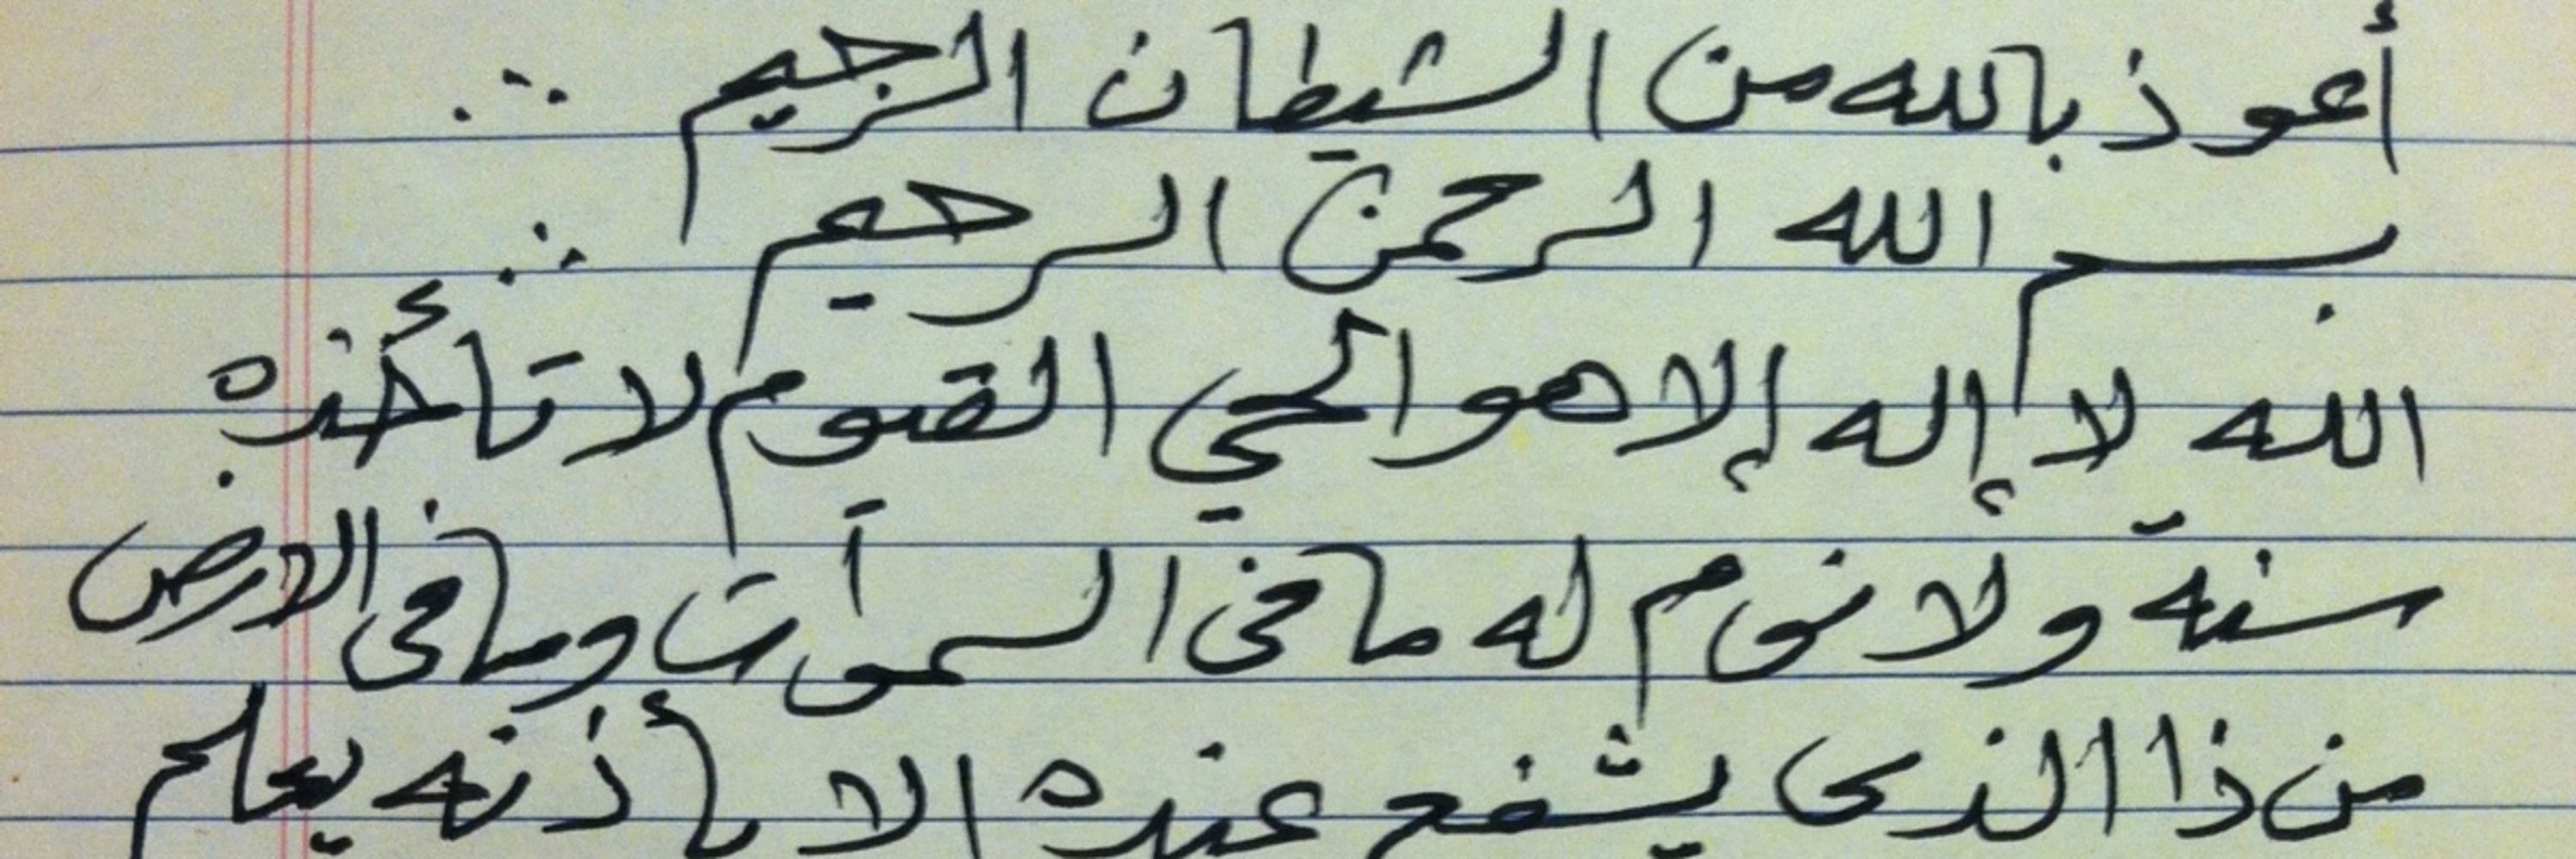 أعوذ بالله من الشيطان الرجيم
بسم الله الرحمن الرحيم
الله لا إله إلا هو الحي القيوم لا تأخذه
سنة ولا نوم له ما في السموأت وما في الارض
من ذا الذى يشفع عنده الا بأذنه يعلم